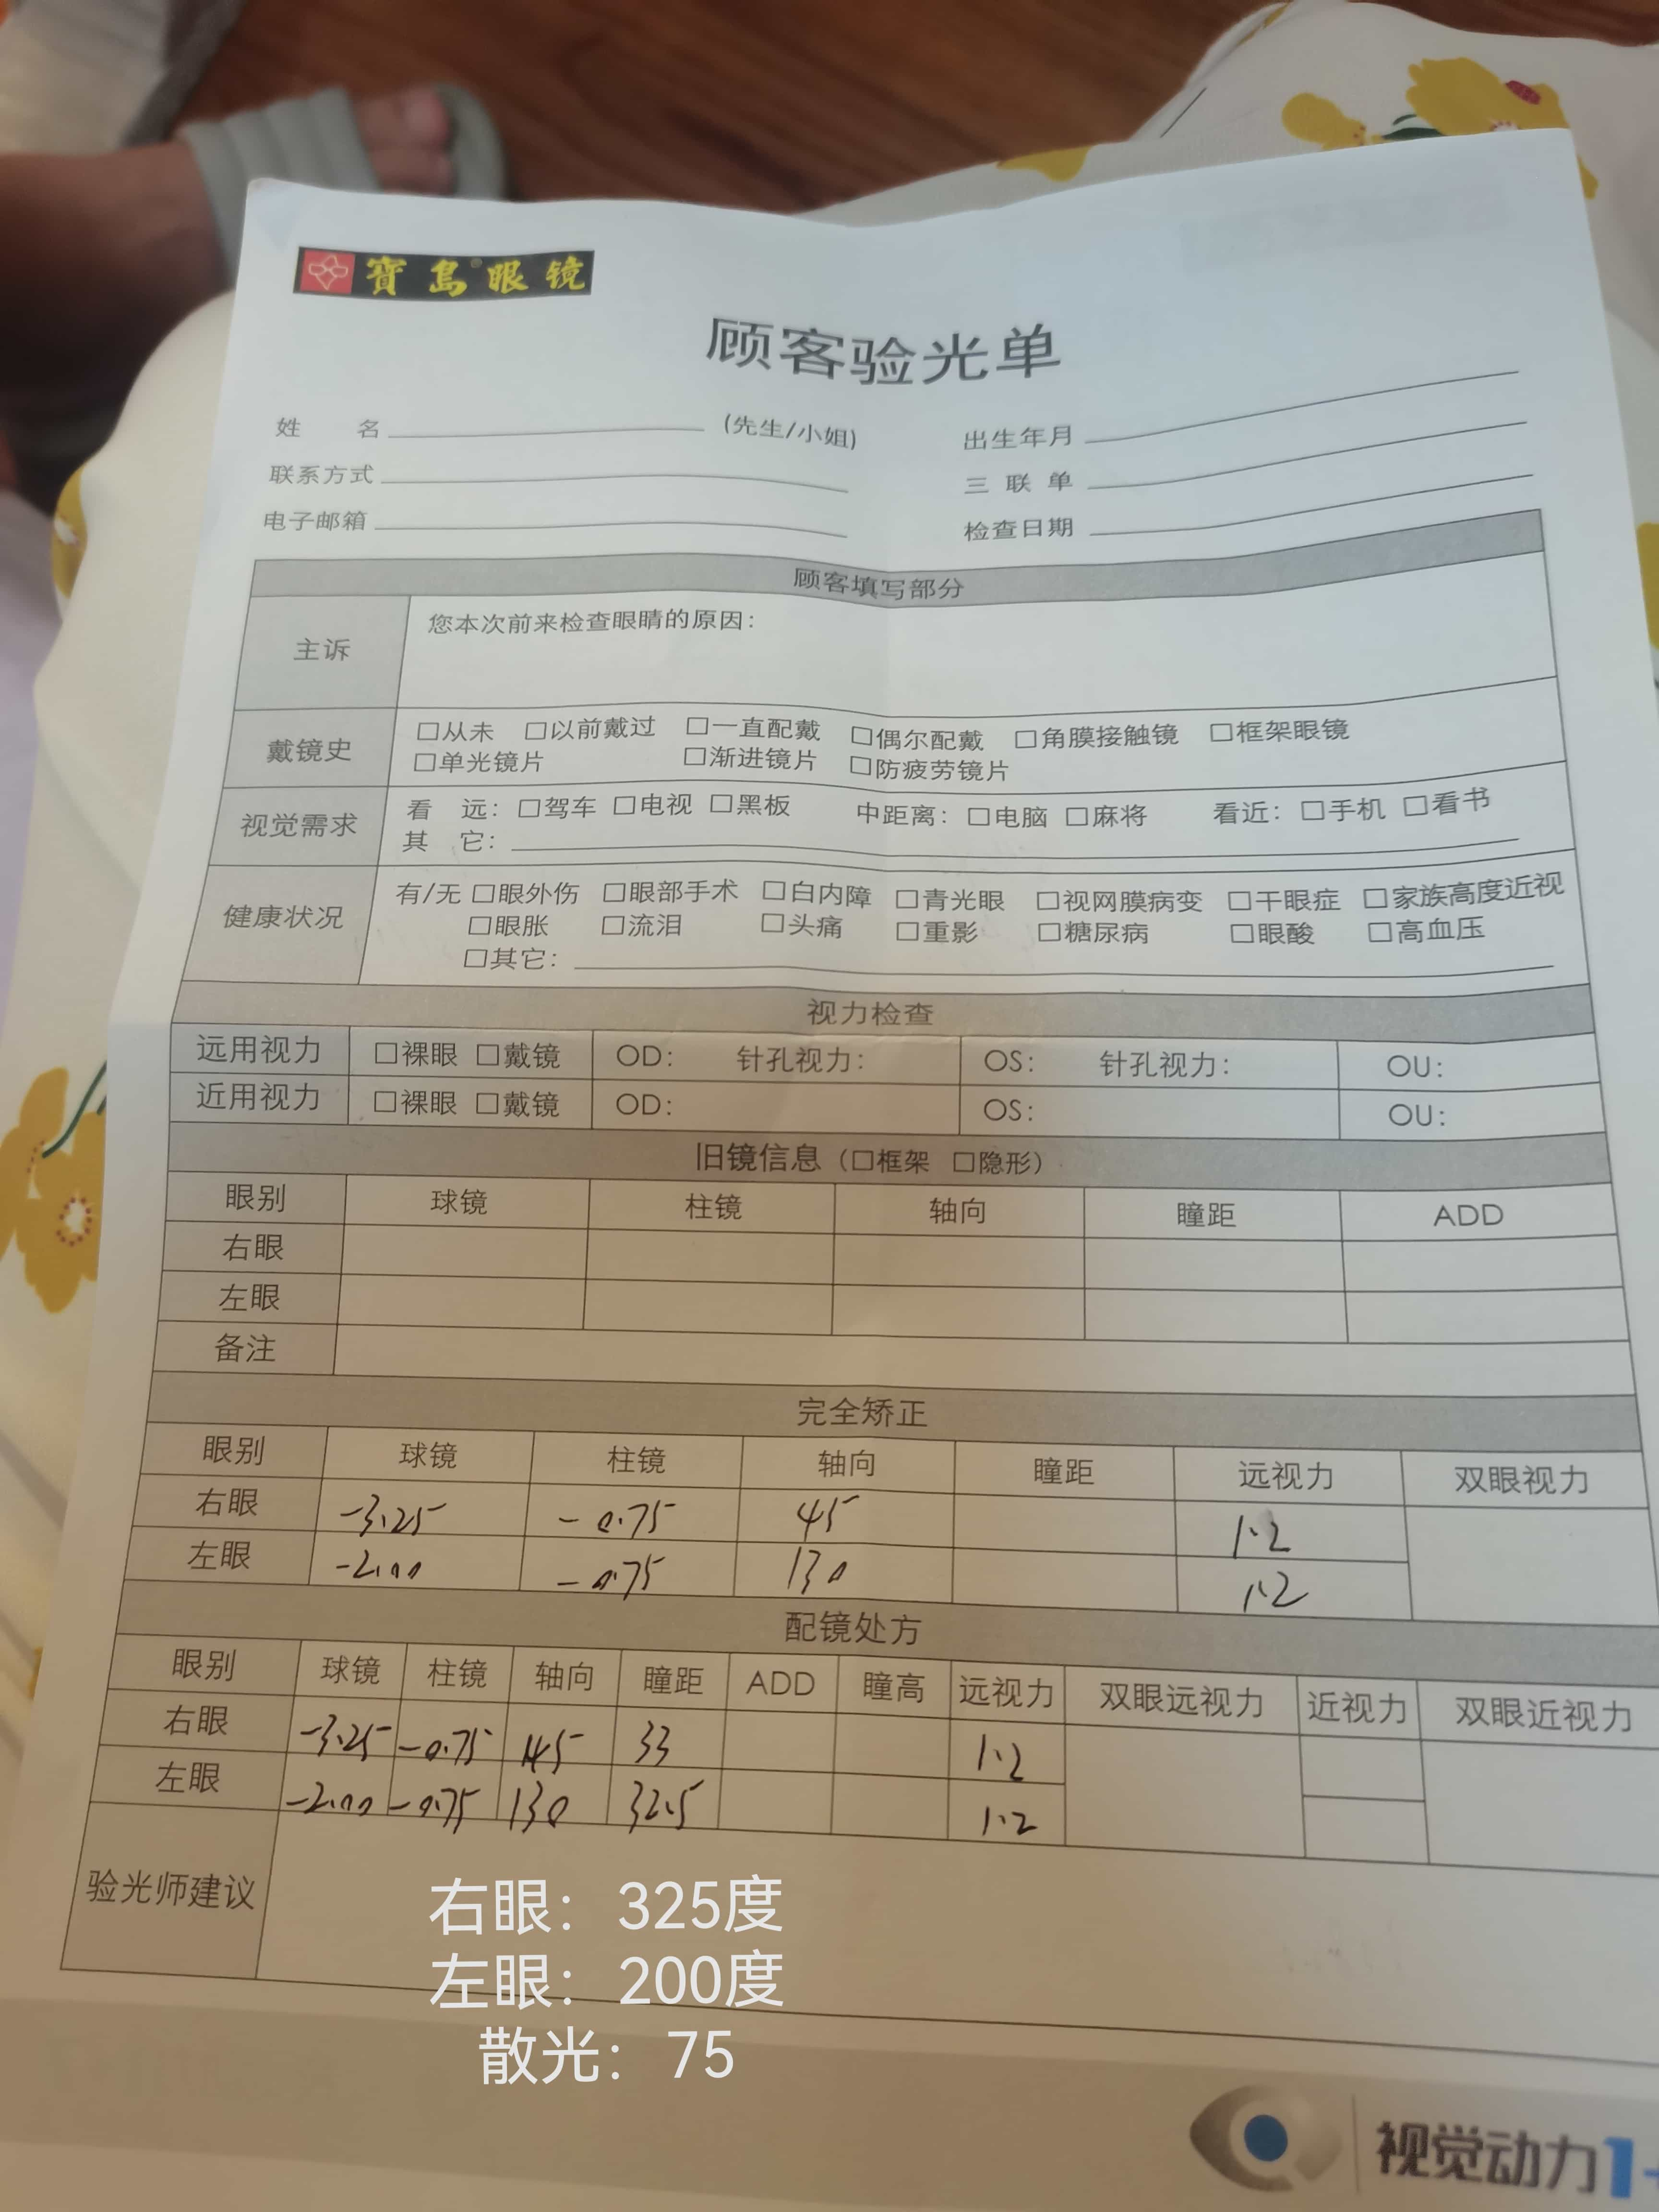 寶島眼镜
顾客验光单
姓 名 (先生/小姐) 出生年月
联系方式 三联单
电子邮箱 检查日期
顾客填写部分
主诉 您本次前来检查眼睛的原因：
戴镜史 □从未 □以前戴过 □一直配戴 □偶尔配戴 □角膜接触镜 □框架眼镜
□单光镜片 □渐进镜片 □防疲劳镜片
视觉需求 看 远：□驾车 □电视 □黑板 中距离：□电脑 □麻将 看近：□手机 □看书
其 它：
健康状况 有/无 □眼外伤 □眼部手术 □白内障 □青光眼 □视网膜病变 □干眼症 □家族高度近视
□眼胀 □流泪 □头痛 □重影 □糖尿病 □眼酸 □高血压
□其它：
视力检查
远用视力 □裸眼 □戴镜 OD： 针孔视力： OS： 针孔视力： OU：
近用视力 □裸眼 □戴镜 OD： OS： OU：
旧镜信息（□框架 □隐形）
眼别 球镜 柱镜 轴向 瞳距 ADD
右眼
左眼
备注
完全矫正
眼别 球镜 柱镜 轴向 瞳距 远视力 双眼视力
右眼 -3.25 -0.75 45 1.2
左眼 -2.00 -0.75 130 1.2
配镜处方
眼别 球镜 柱镜 轴向 瞳距 ADD 瞳高 远视力 双眼远视力 近视力 双眼近视力
右眼 -3.25 -0.75 33 1.2
左眼 -2.00 -0.75 130 32.5 1.2
验光师建议
右眼：325度
左眼：200度
散光：75
视觉动力1+